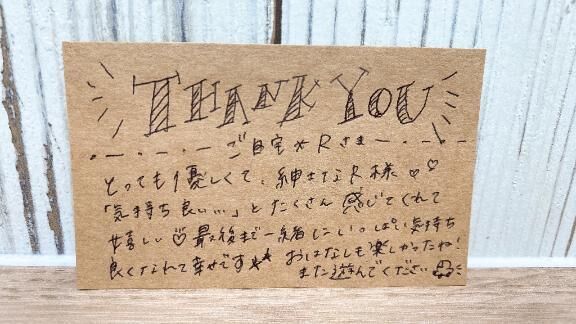 THANK YOU
ご自宅☆Rさま
とっても優しくて、紳士なR様♡♡
「気持ち良い…」とたくさん感じてくれて
嬉しい♡最後まで一緒にいっぱい気持ち
良くなれて幸せです★★ おはなしも楽しかったね!
また遊んでください